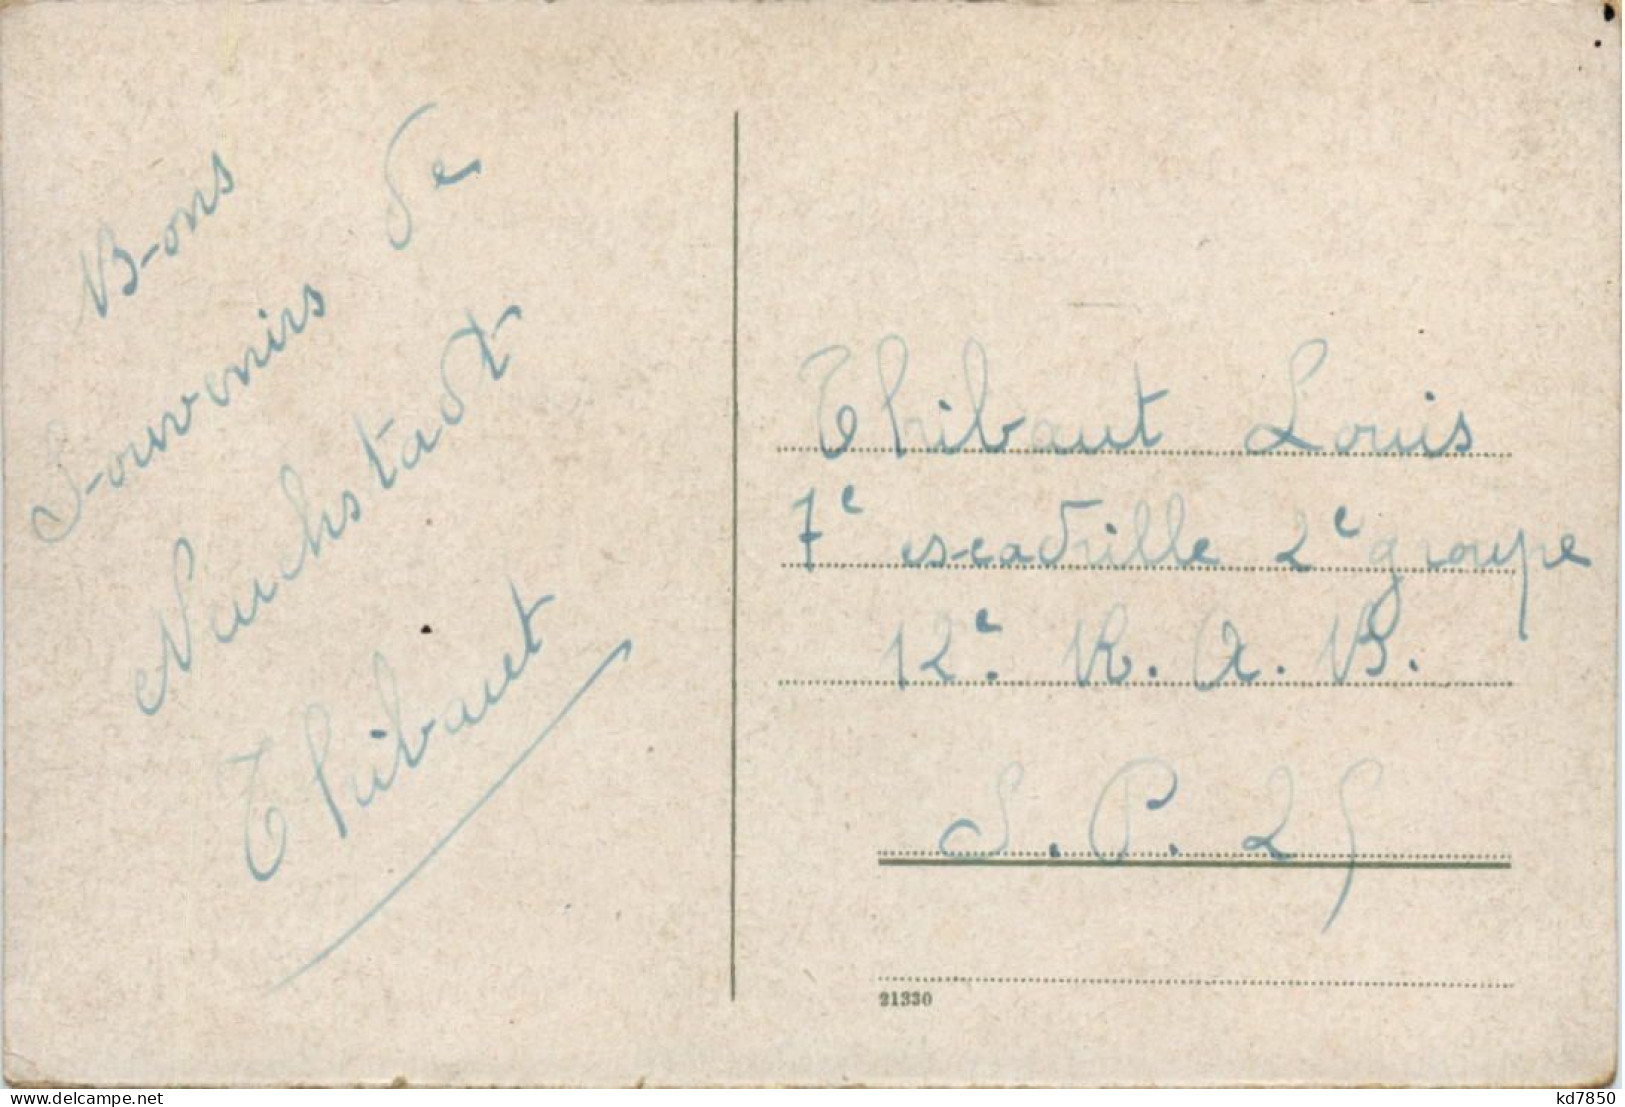 Bons
Souvenirs de
Neuchstadt
Thibaut
Thibaut Louis
7e escadrille 2e groupe
12e. R. A. B.
S. P. 25
21330
delcampe.com
kd7850